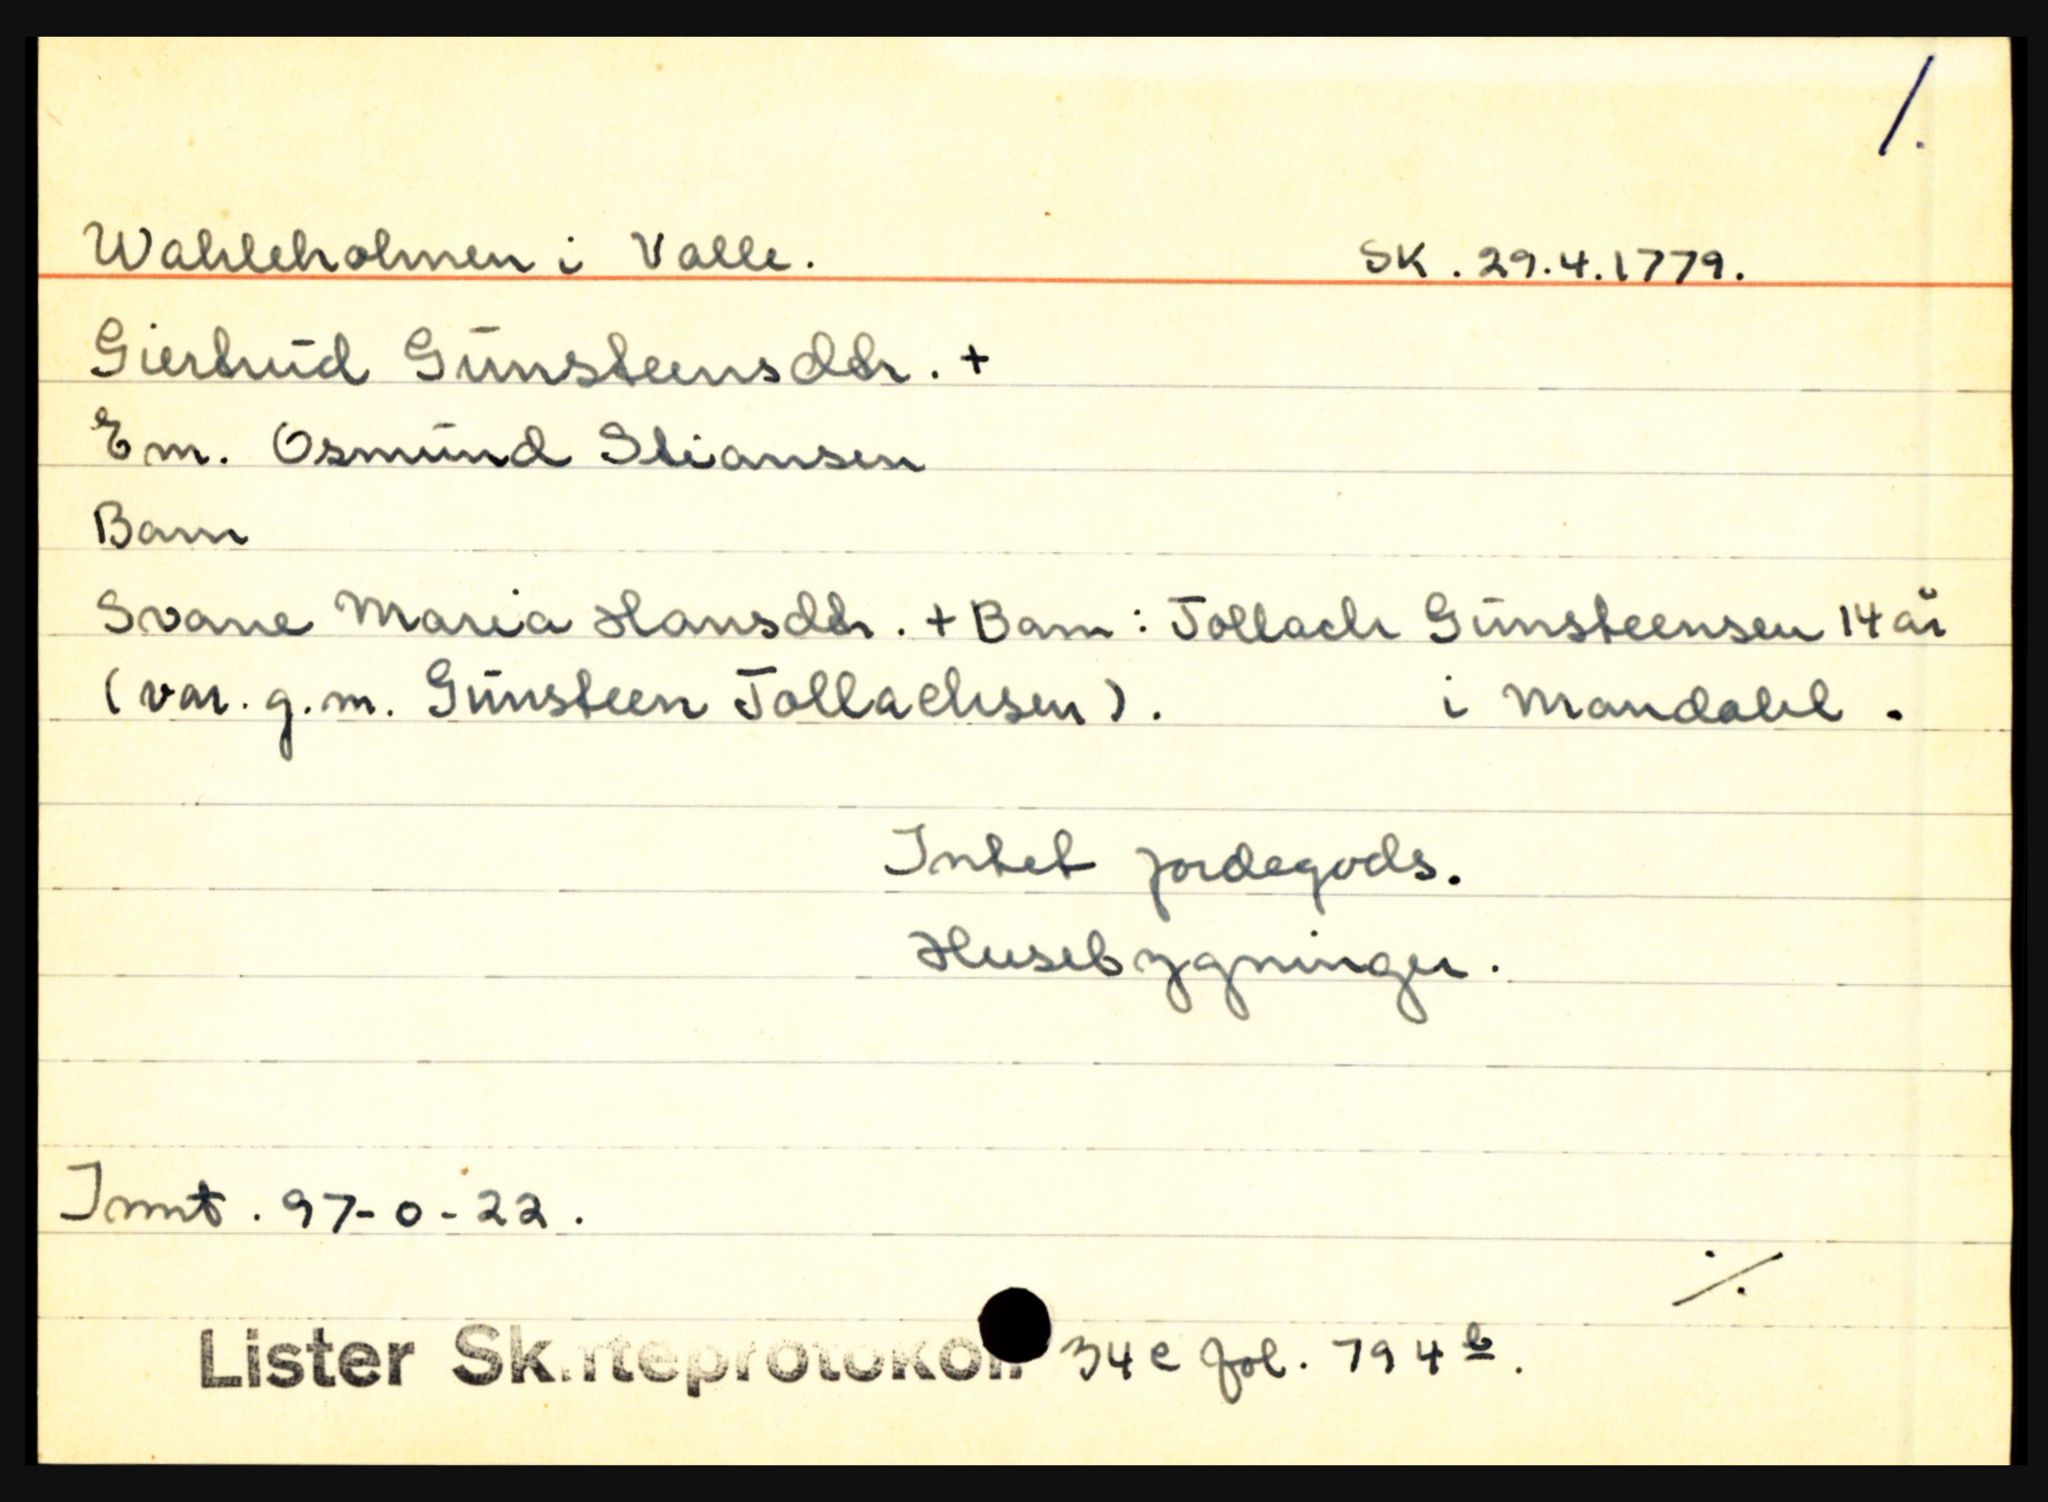 /.
Wahleholmen i Valle. SK. 29.4.1779.
Giertrud Gunsteensdtr. +
Em. Osmund Stiansen
Barn
Svane Maria Hansdtr. + Barn: Tollach Gunsteensen 14 år
(var. g.m. Gunsteen Tollachsen). i Mandahl.
Intet jordegods.
Husebygninger.
Innt. 97-0-22.
./.
Lister Skifteprotokoll 34c fol. 794b.